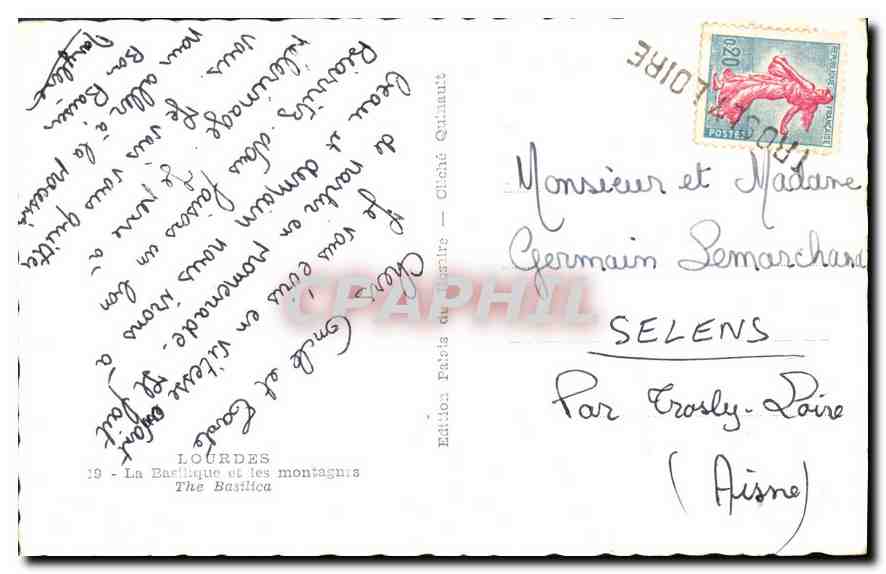 Chers Oncle et Tante
Je vous écris en vitesse avant
de partir en promenade. Il fait
beau et demain nous irons à
Biarritz. Nous faisons un bon
pèlerinage. Je pense à
vous. Je vais vous quitter
pour aller à la procession
Bon Baiser
LOURDES
19 - La Basilique et les montagnes
The Basilica
Edition Palais du Rosaire - Cliché Quinault
REPUBLIQUE FRANÇAISE
0,20
POSTES
TROSLY LOIRE
Monsieur et Madame
Germain Lemarchand
SELENS
Par Trosly-Loire
(Aisne)
CPAPHIL